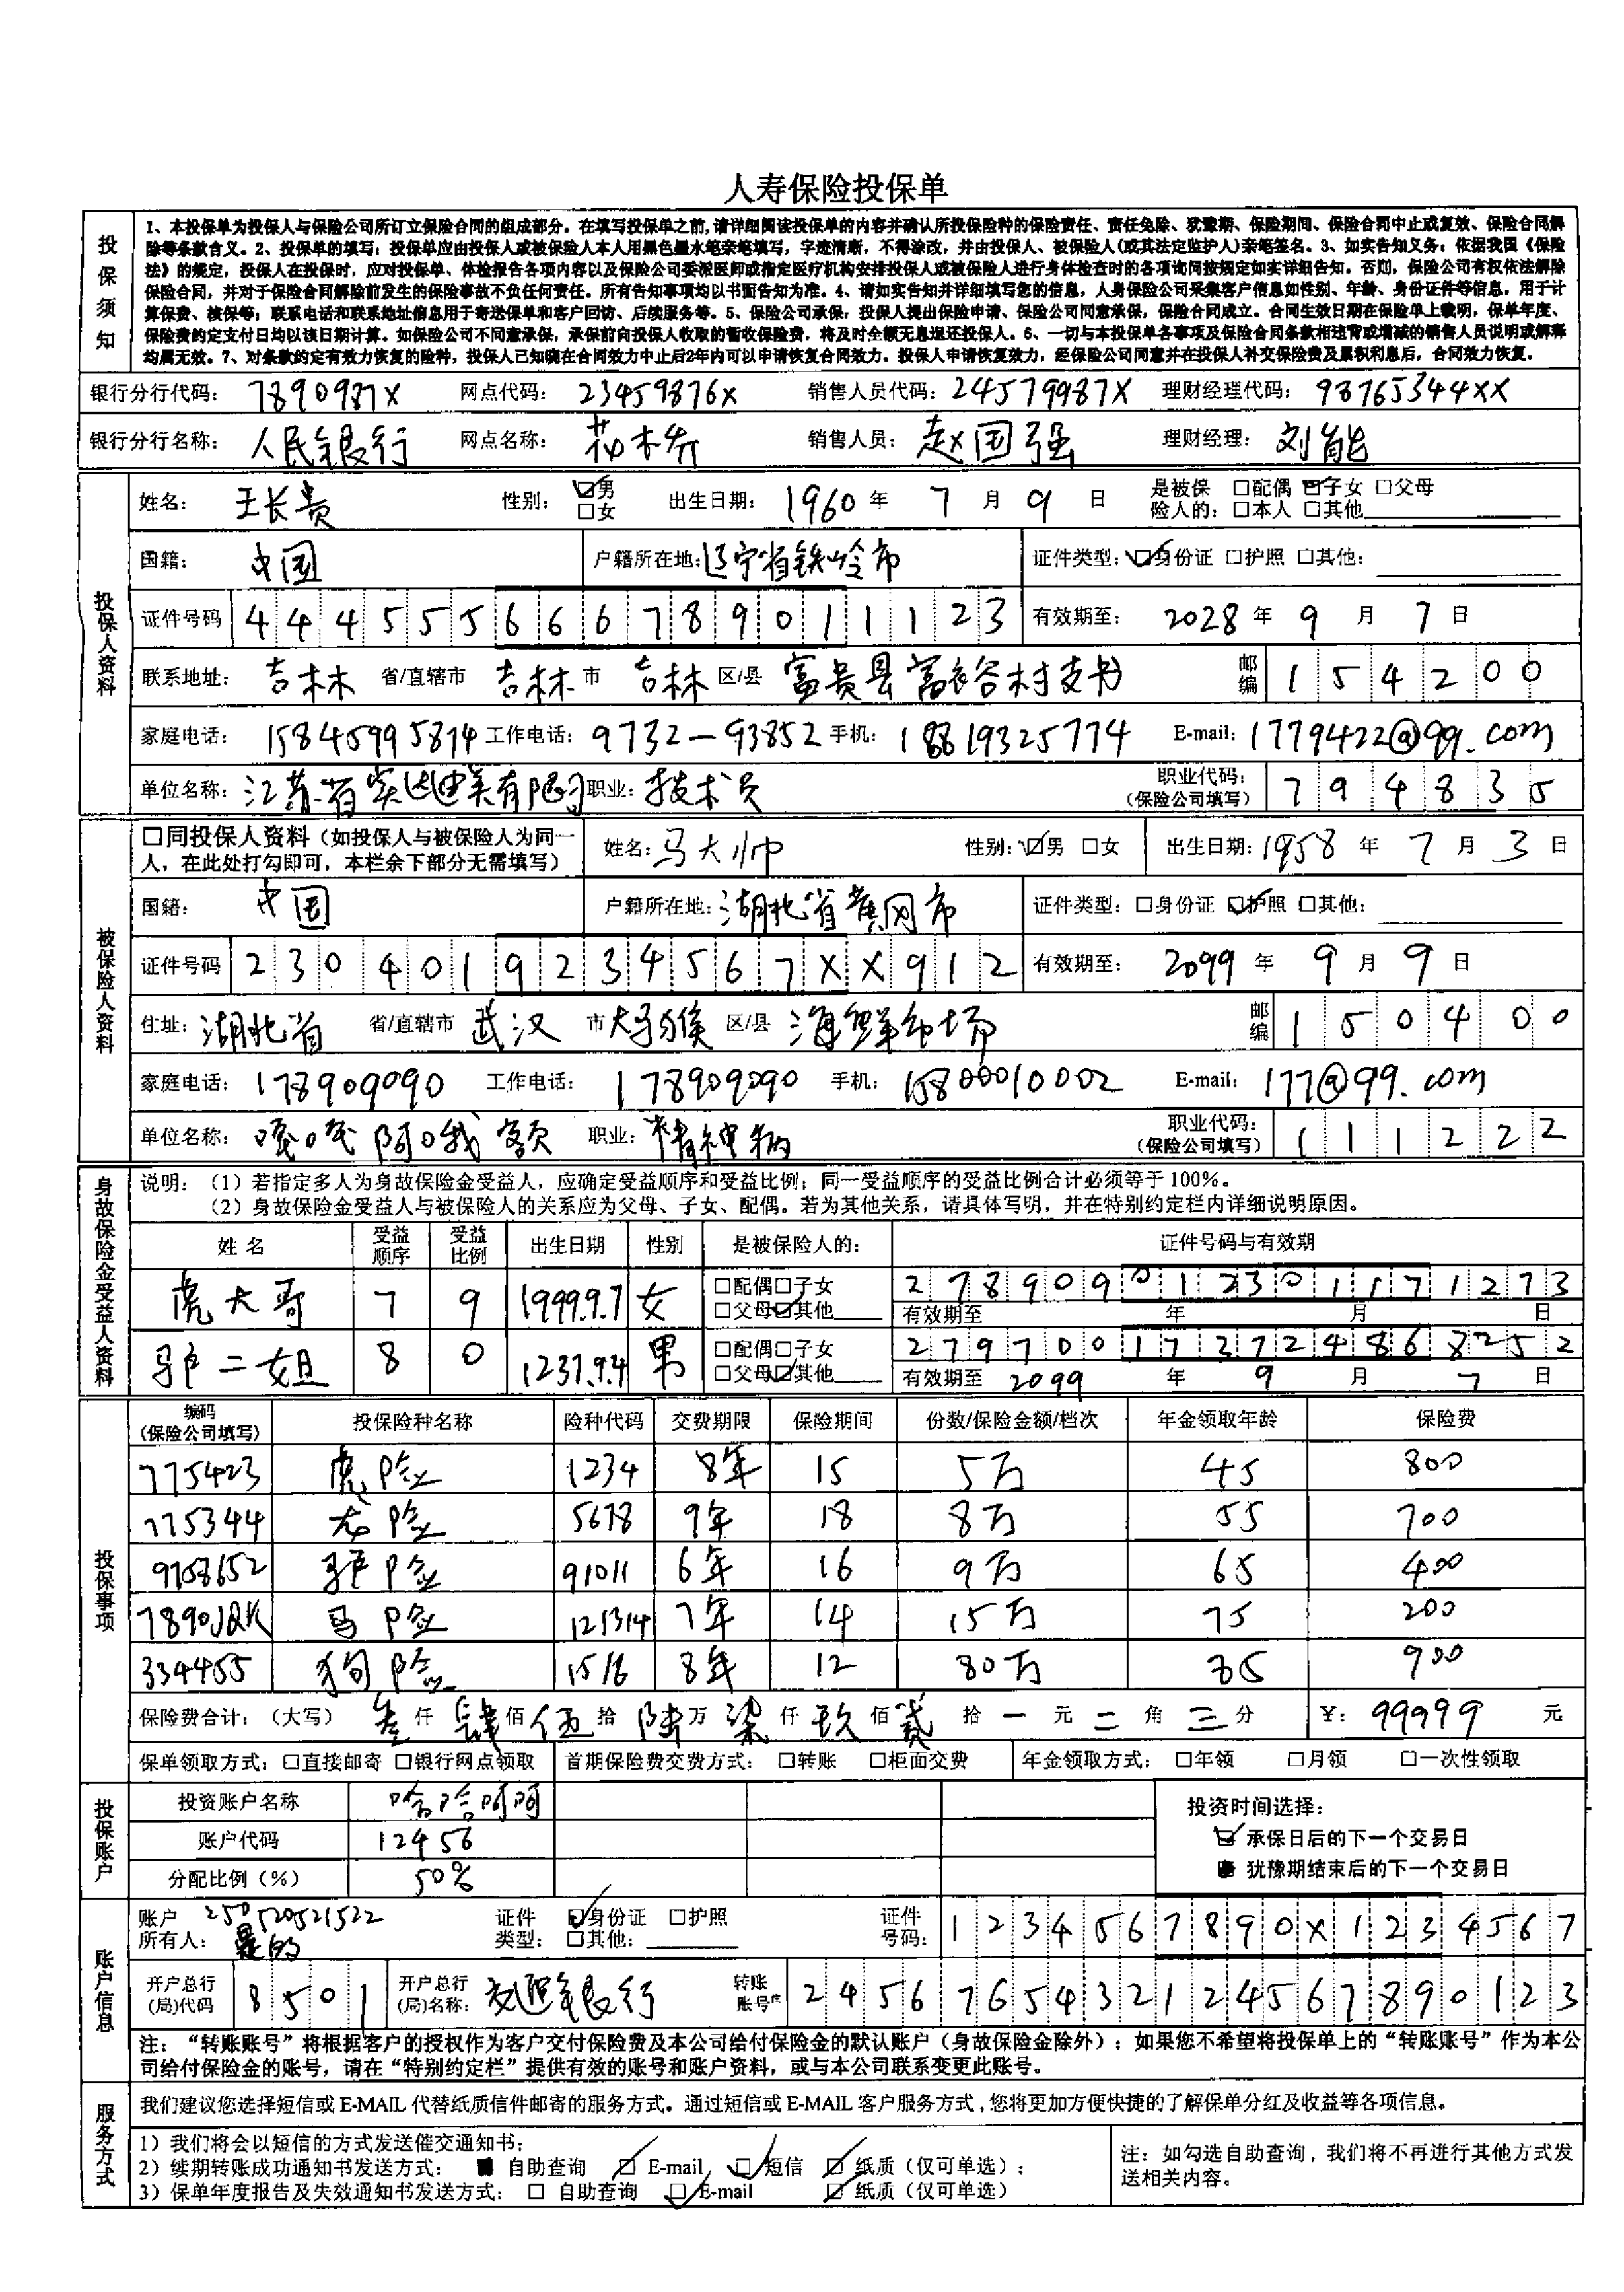 人寿保险投保单
投保须知
1、本投保单为投保人与保险公司所订立保险合同的组成部分。在填写投保单之前,请详细阅读投保单的内容并确认所投保险种的保险责任、责任免除、犹豫期、保险期间、保险合同中止或复效、保险合同解
除等条款含义。2、投保单的填写：投保单应由投保人或被保险人本人用黑色墨水笔亲笔填写，字迹清晰，不得涂改，并由投保人、被保险人(或其法定监护人)亲笔签名。3、如实告知义务：依据我国《保险
法》的规定，投保人在投保时，应对投保单、体检报告各项内容以及保险公司委派医师或指定医疗机构安排投保人或被保险人进行身体检查时的各项询问按规定如实详细告知。否则，保险公司有权依法解除
保险合同，并对于保险合同解除前发生的保险事故不负任何责任。所有告知事项均以书面告知为准。4、请如实告知并详细填写您的信息，人身保险公司采集客户信息如性别、年龄、身份证件等信息，用于计
算保费、核保等；联系电话和联系地址信息用于寄送保单和客户回访、后续服务等。5、保险公司承保：投保人提出保险申请、保险公司同意承保，保险合同成立。合同生效日期在保险单上载明，保单年度、
保险费约定支付日均以该日期计算。如保险公司不同意承保，承保前向投保人收取的暂收保险费，将及时全额无息退还投保人。6、一切与本投保单各事项及保险合同条款相违背或增减的销售人员说明或解释
均属无效。7、对条款约定有效力恢复的险种，投保人已知晓在合同效力中止后2年内可以申请恢复合同效力。投保人申请恢复效力，经保险公司同意并在投保人补交保险费及累积利息后，合同效力恢复。
银行分行代码： 7890987X 网点代码： 23459876X 销售人员代码： 24579987X 理财经理代码： 98765344XX
银行分行名称： 人民银行 网点名称： 花木乔 销售人员： 赵国强 理财经理： 刘能
投保人资料
姓名： 王长贵 性别： ☑男 □女 出生日期： 1960 年 7 月 9 日 是被保险人的： □配偶 子女 □父母 □本人 □其他
国籍： 中国 户籍所在地： 辽宁省铁岭市 证件类型： ☑身份证 □护照 □其他：
证件号码 444555666789011123 有效期至： 2028 年 9 月 7 日
联系地址： 吉林 省/直辖市 吉林 市 吉林 区/县 富贵县富裕谷村支书 邮编 154200
家庭电话： 15845995874 工作电话： 9732-93852 手机： 18819325774 E-mail： 1779422@qq.com
单位名称： 江苏省 有限 职业： 技术员 职业代码：（保险公司填写） 794835
被保险人资料
□同投保人资料（如投保人与被保险人为同一人，在此处打勾即可，本栏余下部分无需填写） 姓名： 马大帅 性别： ☑男 □女 出生日期： 1958 年 7 月 3 日
国籍： 中国 户籍所在地： 湖北省黄冈市 证件类型： □身份证 ☑护照 □其他：
证件号码 2304019234567XX912 有效期至： 2099 年 9 月 9 日
住址： 湖北省 省/直辖市 武汉 市 区/县 海鲜市场 邮编 150400
家庭电话： 178909090 工作电话： 178909090 手机： 15800010002 E-mail： 177@qq.com
单位名称： 阿哦额 职业： 精神病 职业代码：（保险公司填写） 111222
身故保险金受益人资料
说明：（1）若指定多人为身故保险金受益人，应确定受益顺序和受益比例；同一受益顺序的受益比例合计必须等于100%。
（2）身故保险金受益人与被保险人的关系应为父母、子女、配偶。若为其他关系，请具体写明，并在特别约定栏内详细说明原因。
姓名 受益顺序 受益比例 出生日期 性别 是被保险人的： 证件号码与有效期
虎大哥 7 9 1999.9.7 女 □配偶□子女 □父母☑其他 278909012301171273 有效期至 年 月 日
驴二姐 8 0 1237.9.4 男 □配偶□子女 □父母☑其他 279700173724868252 有效期至 2099 年 9 月 7 日
投保事项
编码（保险公司填写） 投保险种名称 险种代码 交费期限 保险期间 份数/保险金额/档次 年金领取年龄 保险费
775423 虎险 1234 8年 15 5万 45 800
775344 龙险 5678 9年 18 8万 55 700
9758652 驴险 91011 6年 16 9万 65 400
7890JQK 马险 121314 7年 14 15万 75 200
334455 狗险 1516 8年 12 80万 85 900
保险费合计：（大写） 叁 仟 肆 佰 伍 拾 陆 万 柒 仟 玖 佰 贰 拾 一 元 二 角 三 分 ￥： 99999 元
保单领取方式： □直接邮寄 □银行网点领取 首期保险费交费方式： □转账 □柜面交费 年金领取方式： □年领 □月领 □一次性领取
投保账户
投资账户名称 哈哈呵呵 投资时间选择：
账户代码 12456 ☑ 承保日后的下一个交易日
分配比例（%） 50% 犹豫期结束后的下一个交易日
账户信息
账户所有人： 250520521522 是的 证件类型： ☑身份证 □护照 □其他： 证件号码： 1234567890X1234567
开户总行（局）代码 8501 开户总行（局）名称： 银行 转账账号 2456765432124567890123
注：“转账账号”将根据客户的授权作为客户交付保险费及本公司给付保险金的默认账户（身故保险金除外）；如果您不希望将投保单上的“转账账号”作为本公
司给付保险金的账号，请在“特别约定栏”提供有效的账号和账户资料，或与本公司联系变更此账号。
服务方式
我们建议您选择短信或 E-MAIL 代替纸质信件邮寄的服务方式。通过短信或 E-MAIL 客户服务方式，您将更加方便快捷的了解保单分红及收益等各项信息。
1）我们将会以短信的方式发送催交通知书；
2）续期转账成功通知书发送方式： ■ 自助查询 ☑ E-mail ☑ 短信 ☑ 纸质（仅可单选）；
3）保单年度报告及失效通知书发送方式： □ 自助查询 ☑ E-mail ☑ 纸质（仅可单选）
注：如勾选自助查询，我们将不再进行其他方式发
送相关内容。